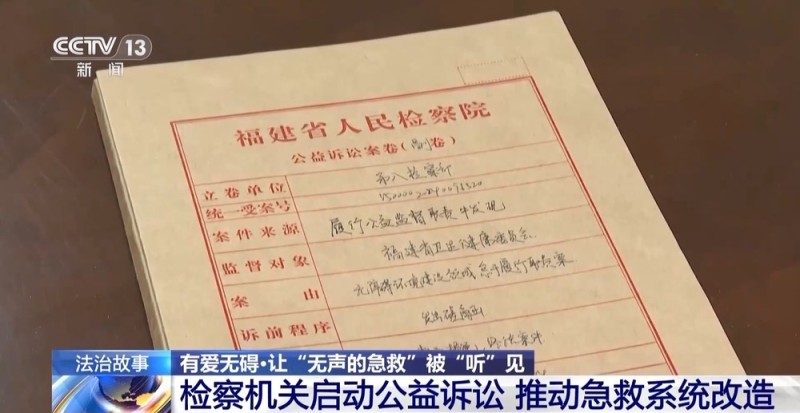 CCTV 13
新闻
福建省人民检察院
公益诉讼案卷(副卷)
立卷单位 第八检察部
统一受案号
案件来源 履行公益监督职责中发现
监督对象 福建省卫生健康委员会
案由 无障碍环境建设领域怠于履行职责案
诉前程序
法治故事
有爱无碍·让“无声的急救”被“听”见
检察机关启动公益诉讼 推动急救系统改造